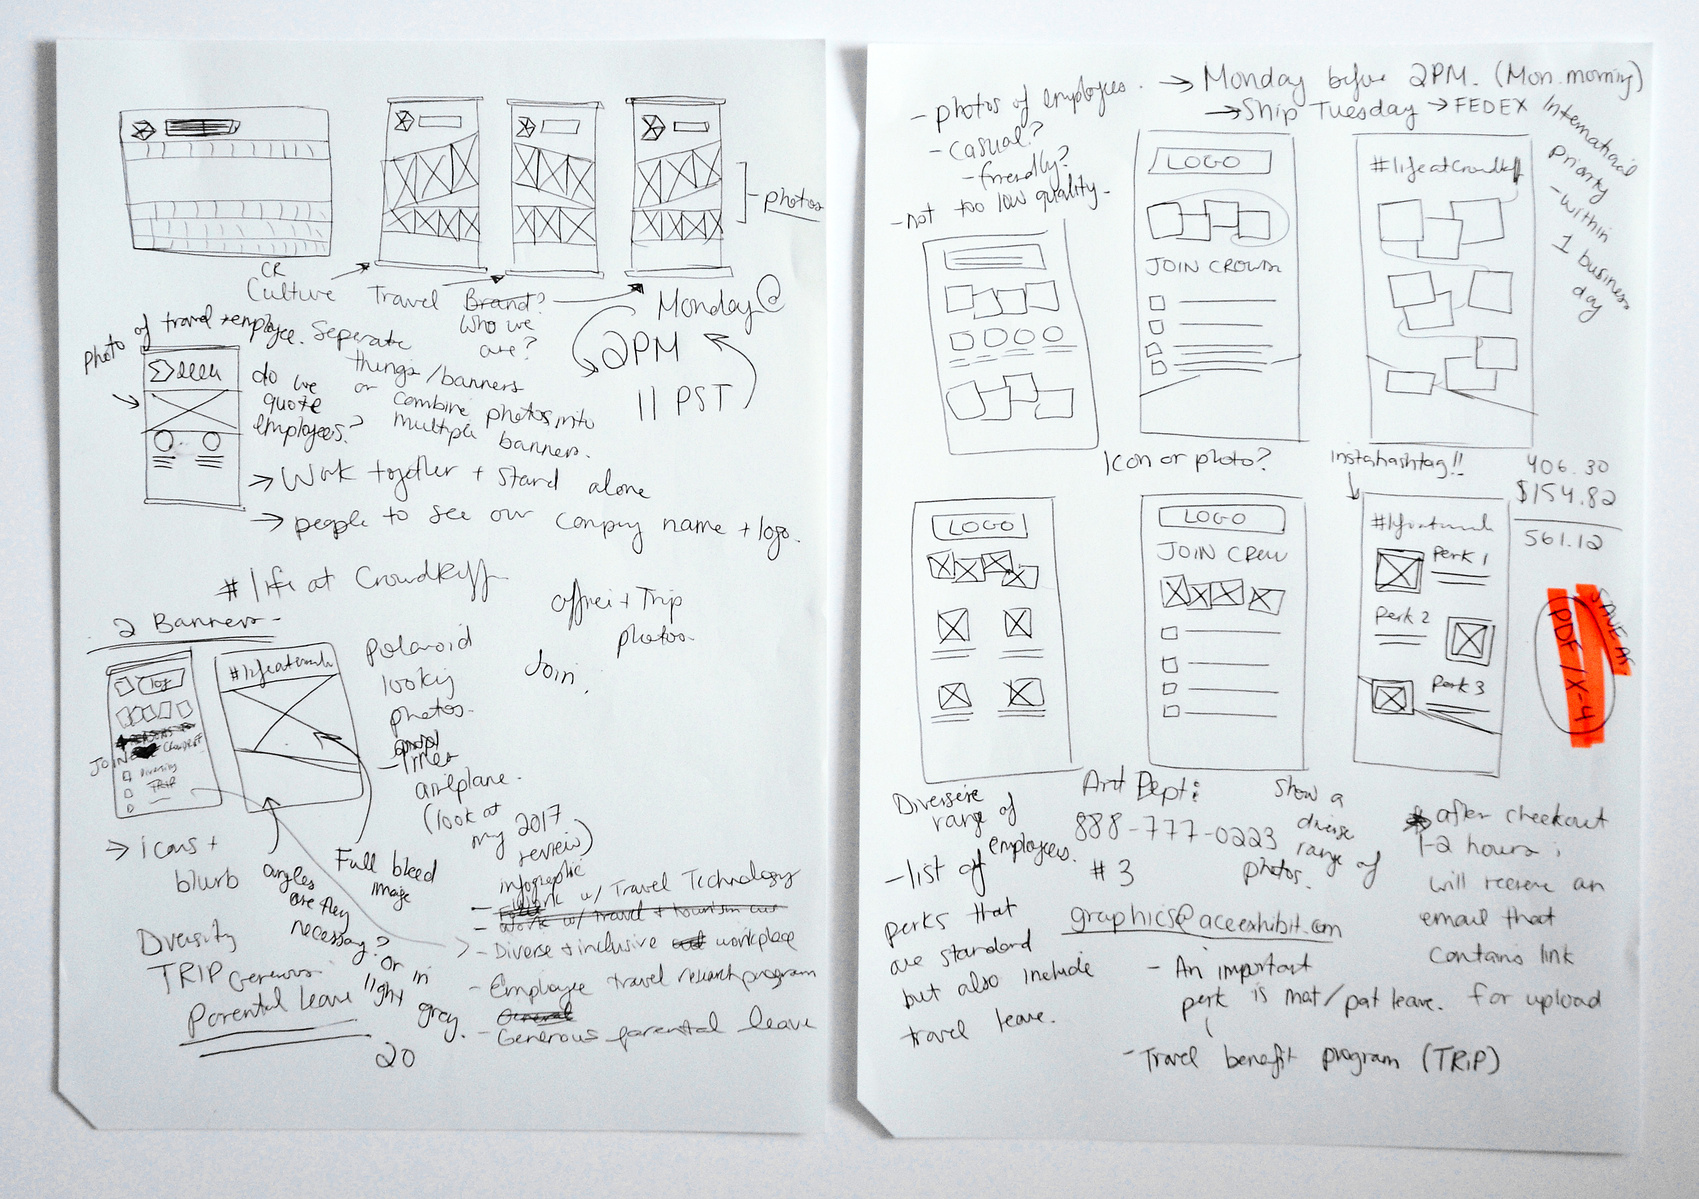 photos
CR
Culture
Travel
Brand?
Who we
are?
Monday @
2PM
11 PST
Photo of travel + employee.
Seperate
things/banners
or
combine photos into
multiple banners.
do we
quote
employees?
→ Work together + stand alone
→ people to see our company name + logo.
#lifeatCrowdRiff
2 Banners
#lifeatcrowdriff
JOIN
Diversity
TRIP
Polaroid
looky
photos.
airplane.
(look at
my 2017
review)
infographic
Trip
photos.
Join
→ icons +
blurb
angles
are they
necessary?
or in
light
grey.
Full bleed
image
Dversity
TRIP Generous
Parental leave
20
- Work w/ Travel Technology
- Work w/ travel + tourism
- Diverse + inclusive workplace
- Employee travel research program
General
- Generous parental leave
- photos of employees.
- casual?
- friendly?
- not too low quality.
→ Monday before 2PM. (Mon. morning)
→ Ship Tuesday → FEDEX International
Priority
- within
1 business
day
LOGO
JOIN CROWDR
#lifeatCrowdriff
Icon or photo?
instahashtag!!
406.30
$154.82
561.12
LOGO
LOGO
JOIN CROW
Perk 1
Perk 2
Perk 3
SAVE AS
PDF/X-4
Diversere
range of
employees.
- list of
perks that
are standard
but also include
travel leave.
Art Dept:
888-777-0223
#3
graphics@aceexhibit.com
show a
diverse
range of
photos.
- An important
perk is mat/pat leave.
- Travel benefit program (TRIP)
* after checkout
1-2 hours,
will receive an
email that
contains link
for upload